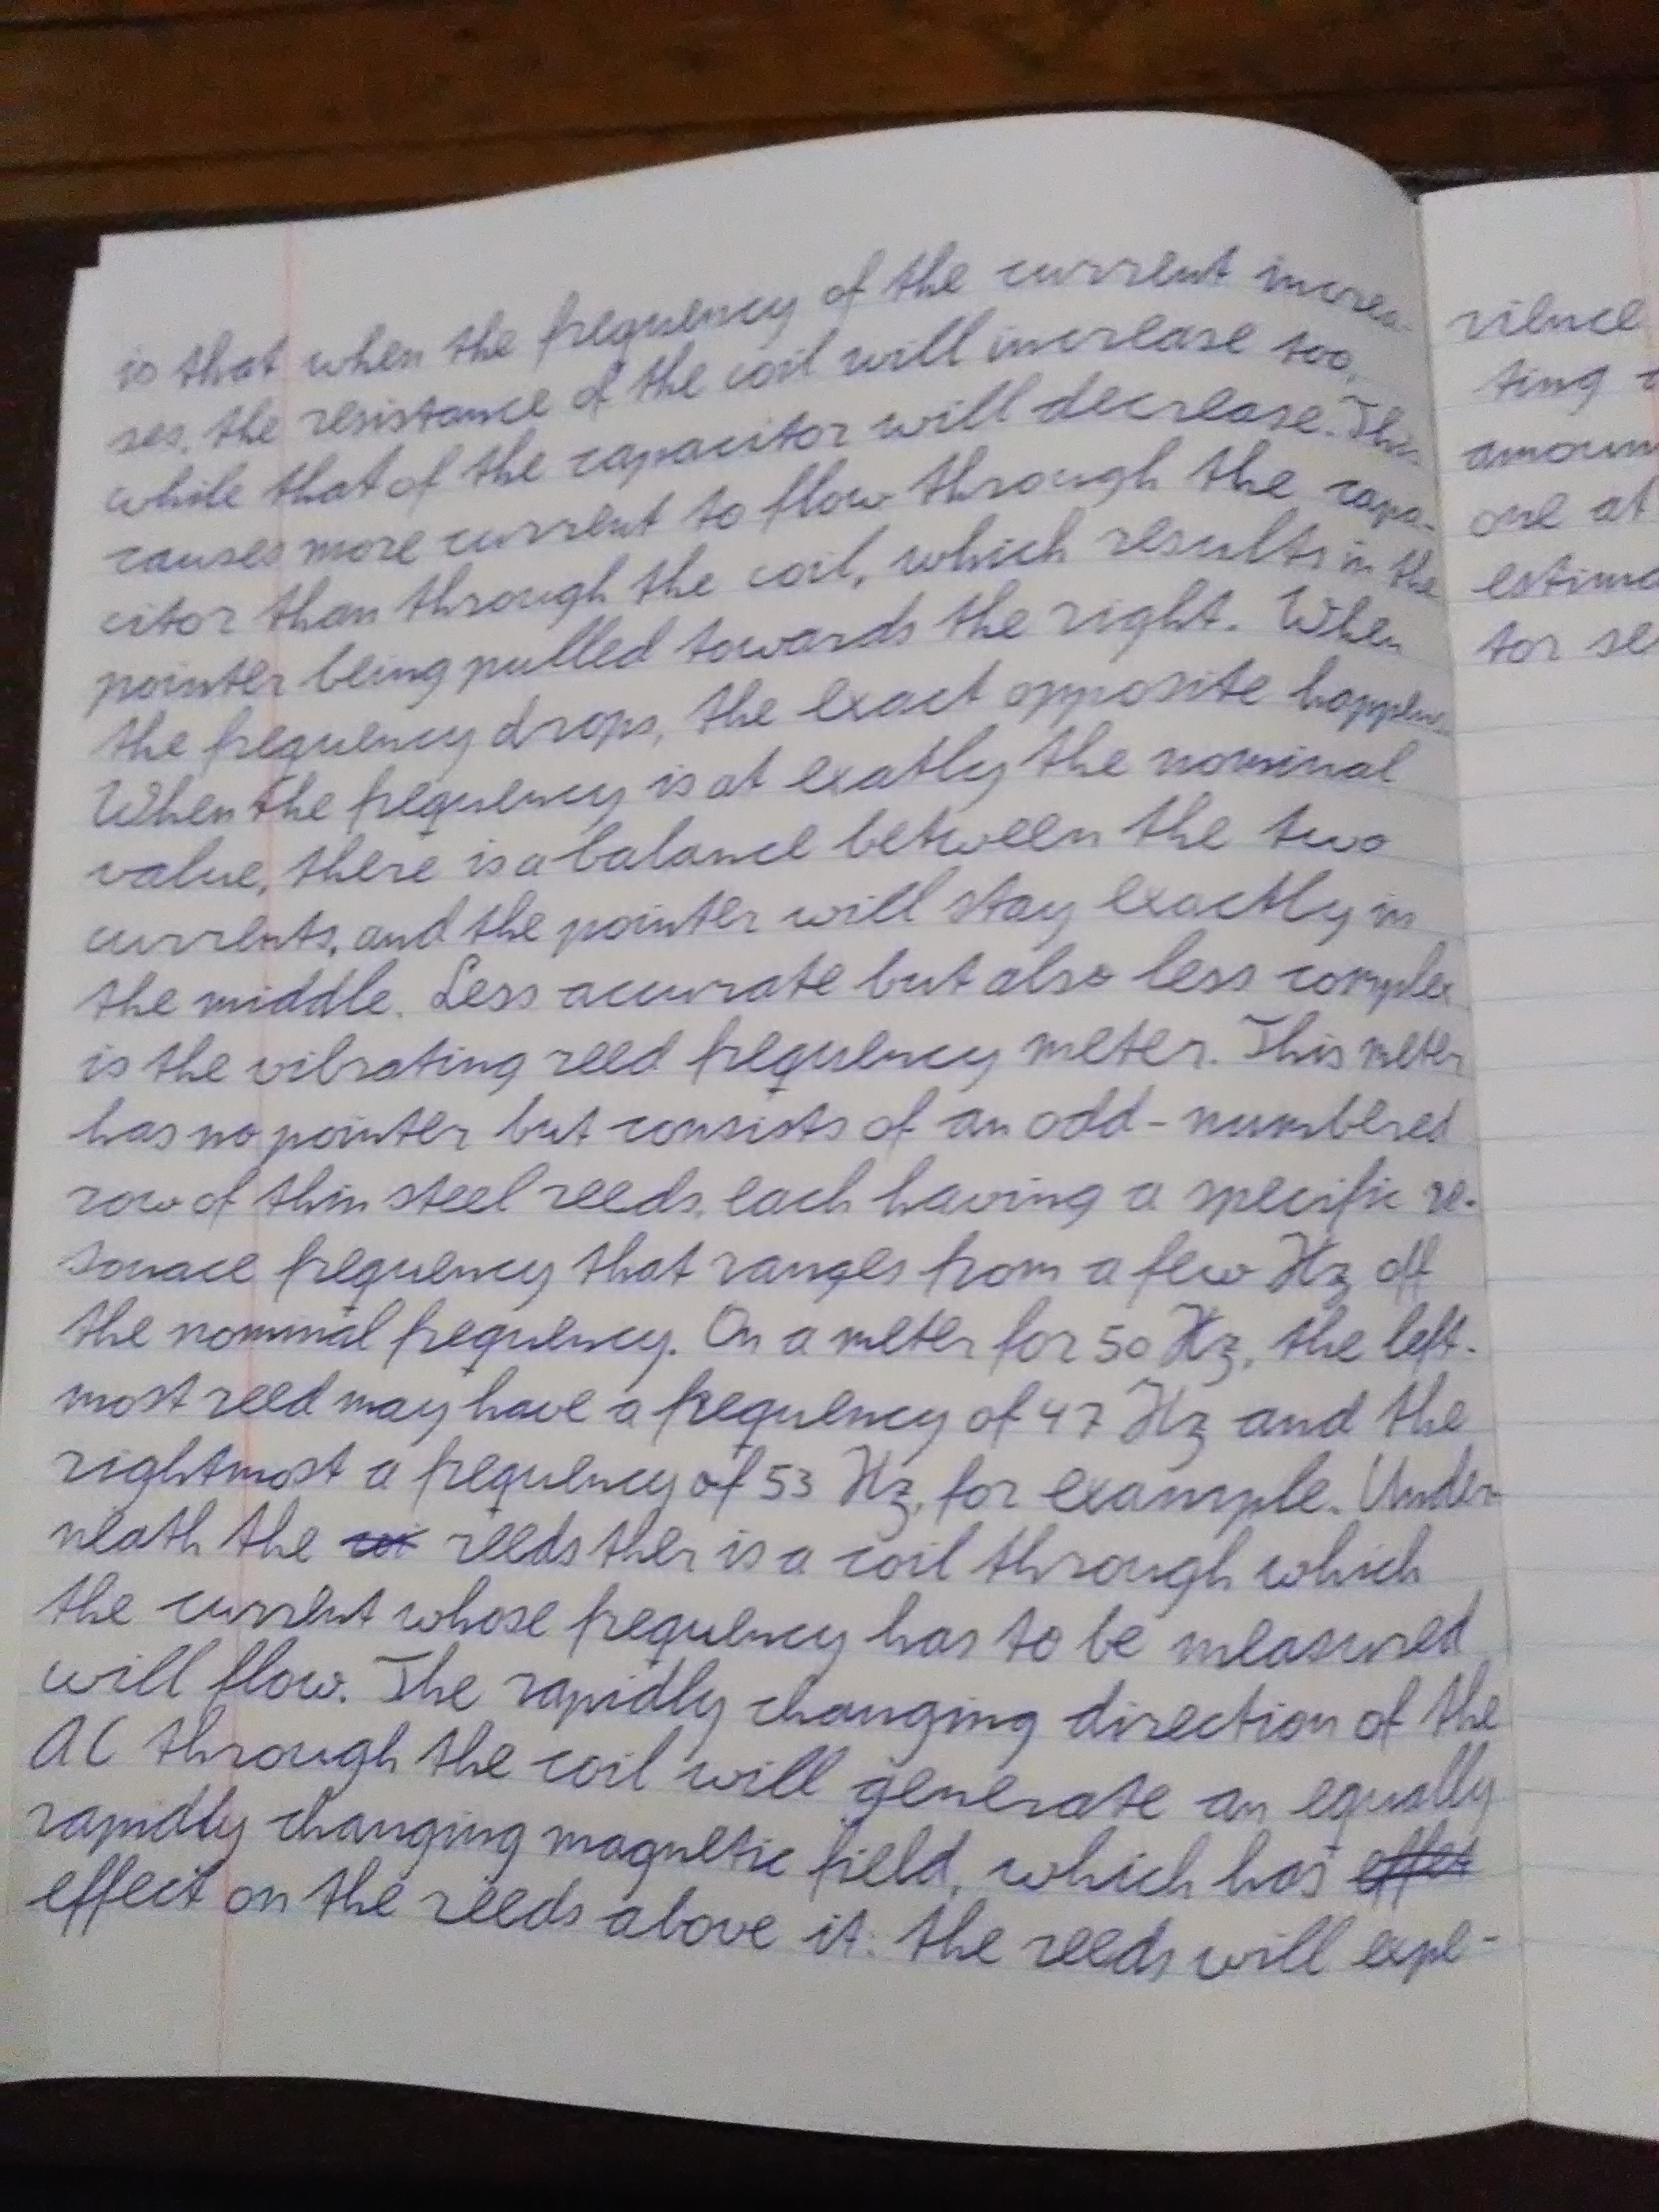 is that when the frequency of the current increa-
ses, the resistance of the coil will increase too,
while that of the capacitor will decrease. This
causes more current to flow through the capa-
citor than through the coil, which results in the
pointer being pulled towards the right. When
the frequency drops, the exact opposite happens.
When the frequency is at exatly the nominal
value, there is a balance between the two
currents, and the pointer will stay exactly in
the middle. Less accurate but also less complex
is the vibrating reed frequency meter. This meter
has no pointer but consists of an odd-numbered
row of thin steel reeds, each having a specific re-
sonace frequency that ranges from a few Hz off
the nominal frequency. On a meter for 50 Hz, the left-
most reed may have a frequency of 47 Hz and the
rightmost a frequency of 53 Hz, for example. Under-
neath the reeds ther is a coil through which
the current whose frequency has to be measured
will flow. The rapidly changing direction of the
AC through the coil will generate an equally
rapidly changing magnetic field, which has effect
effect on the reeds above it: the reeds will expe-
rience
ting
amoun
one at
estima
tor se